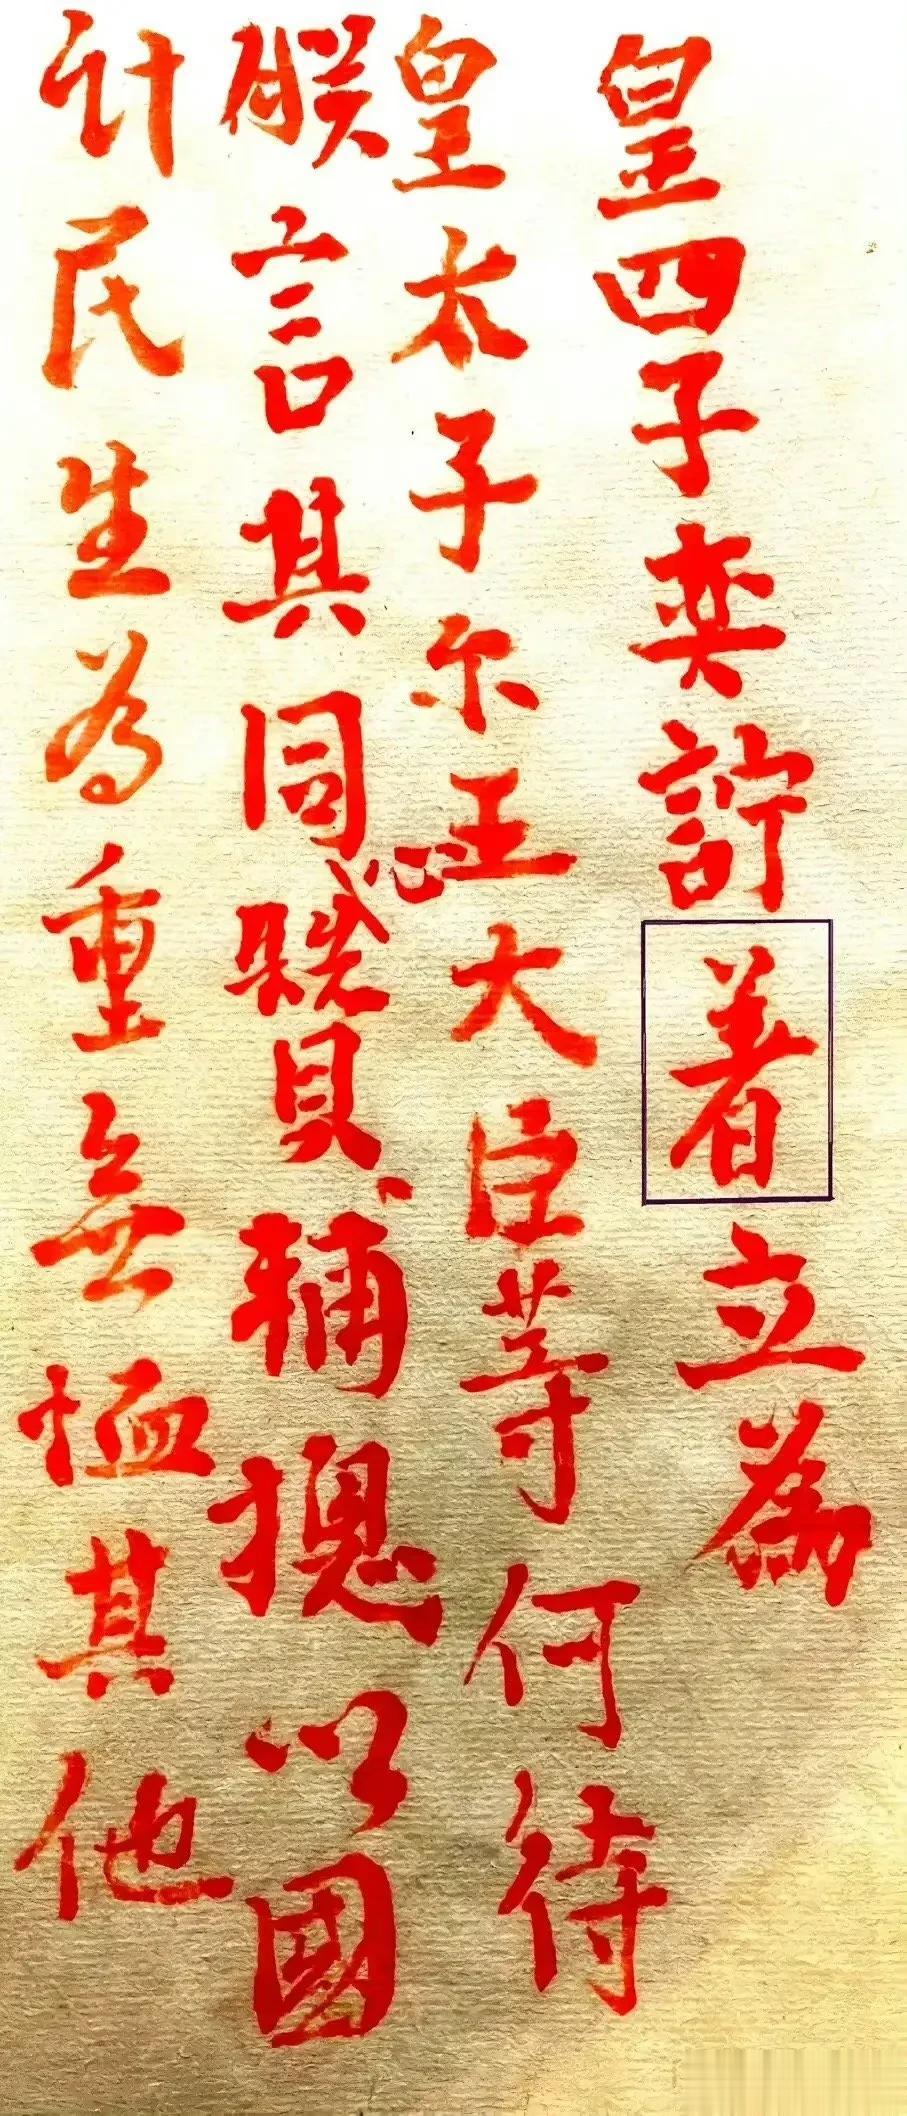 皇四子奕詝著立為
皇太子尔王大臣等何待
朕言其同心賛輔摠以國
計民生為重無恤其他